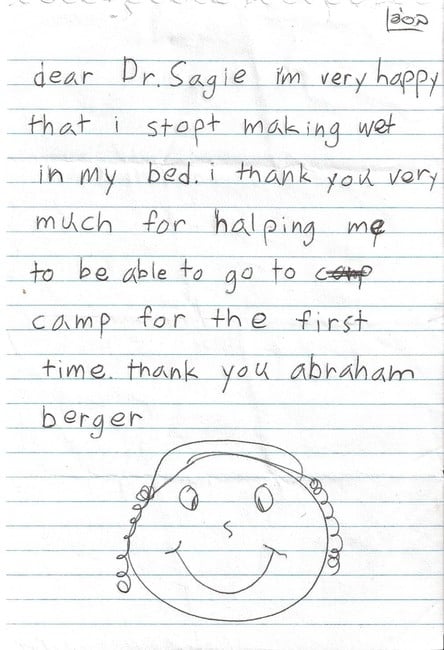 dear Dr. Sagie im very happy
that i stopt making wet
in my bed. i thank you very
much for halping me
to be able to go to
camp for the first
time. thank you abraham
berger